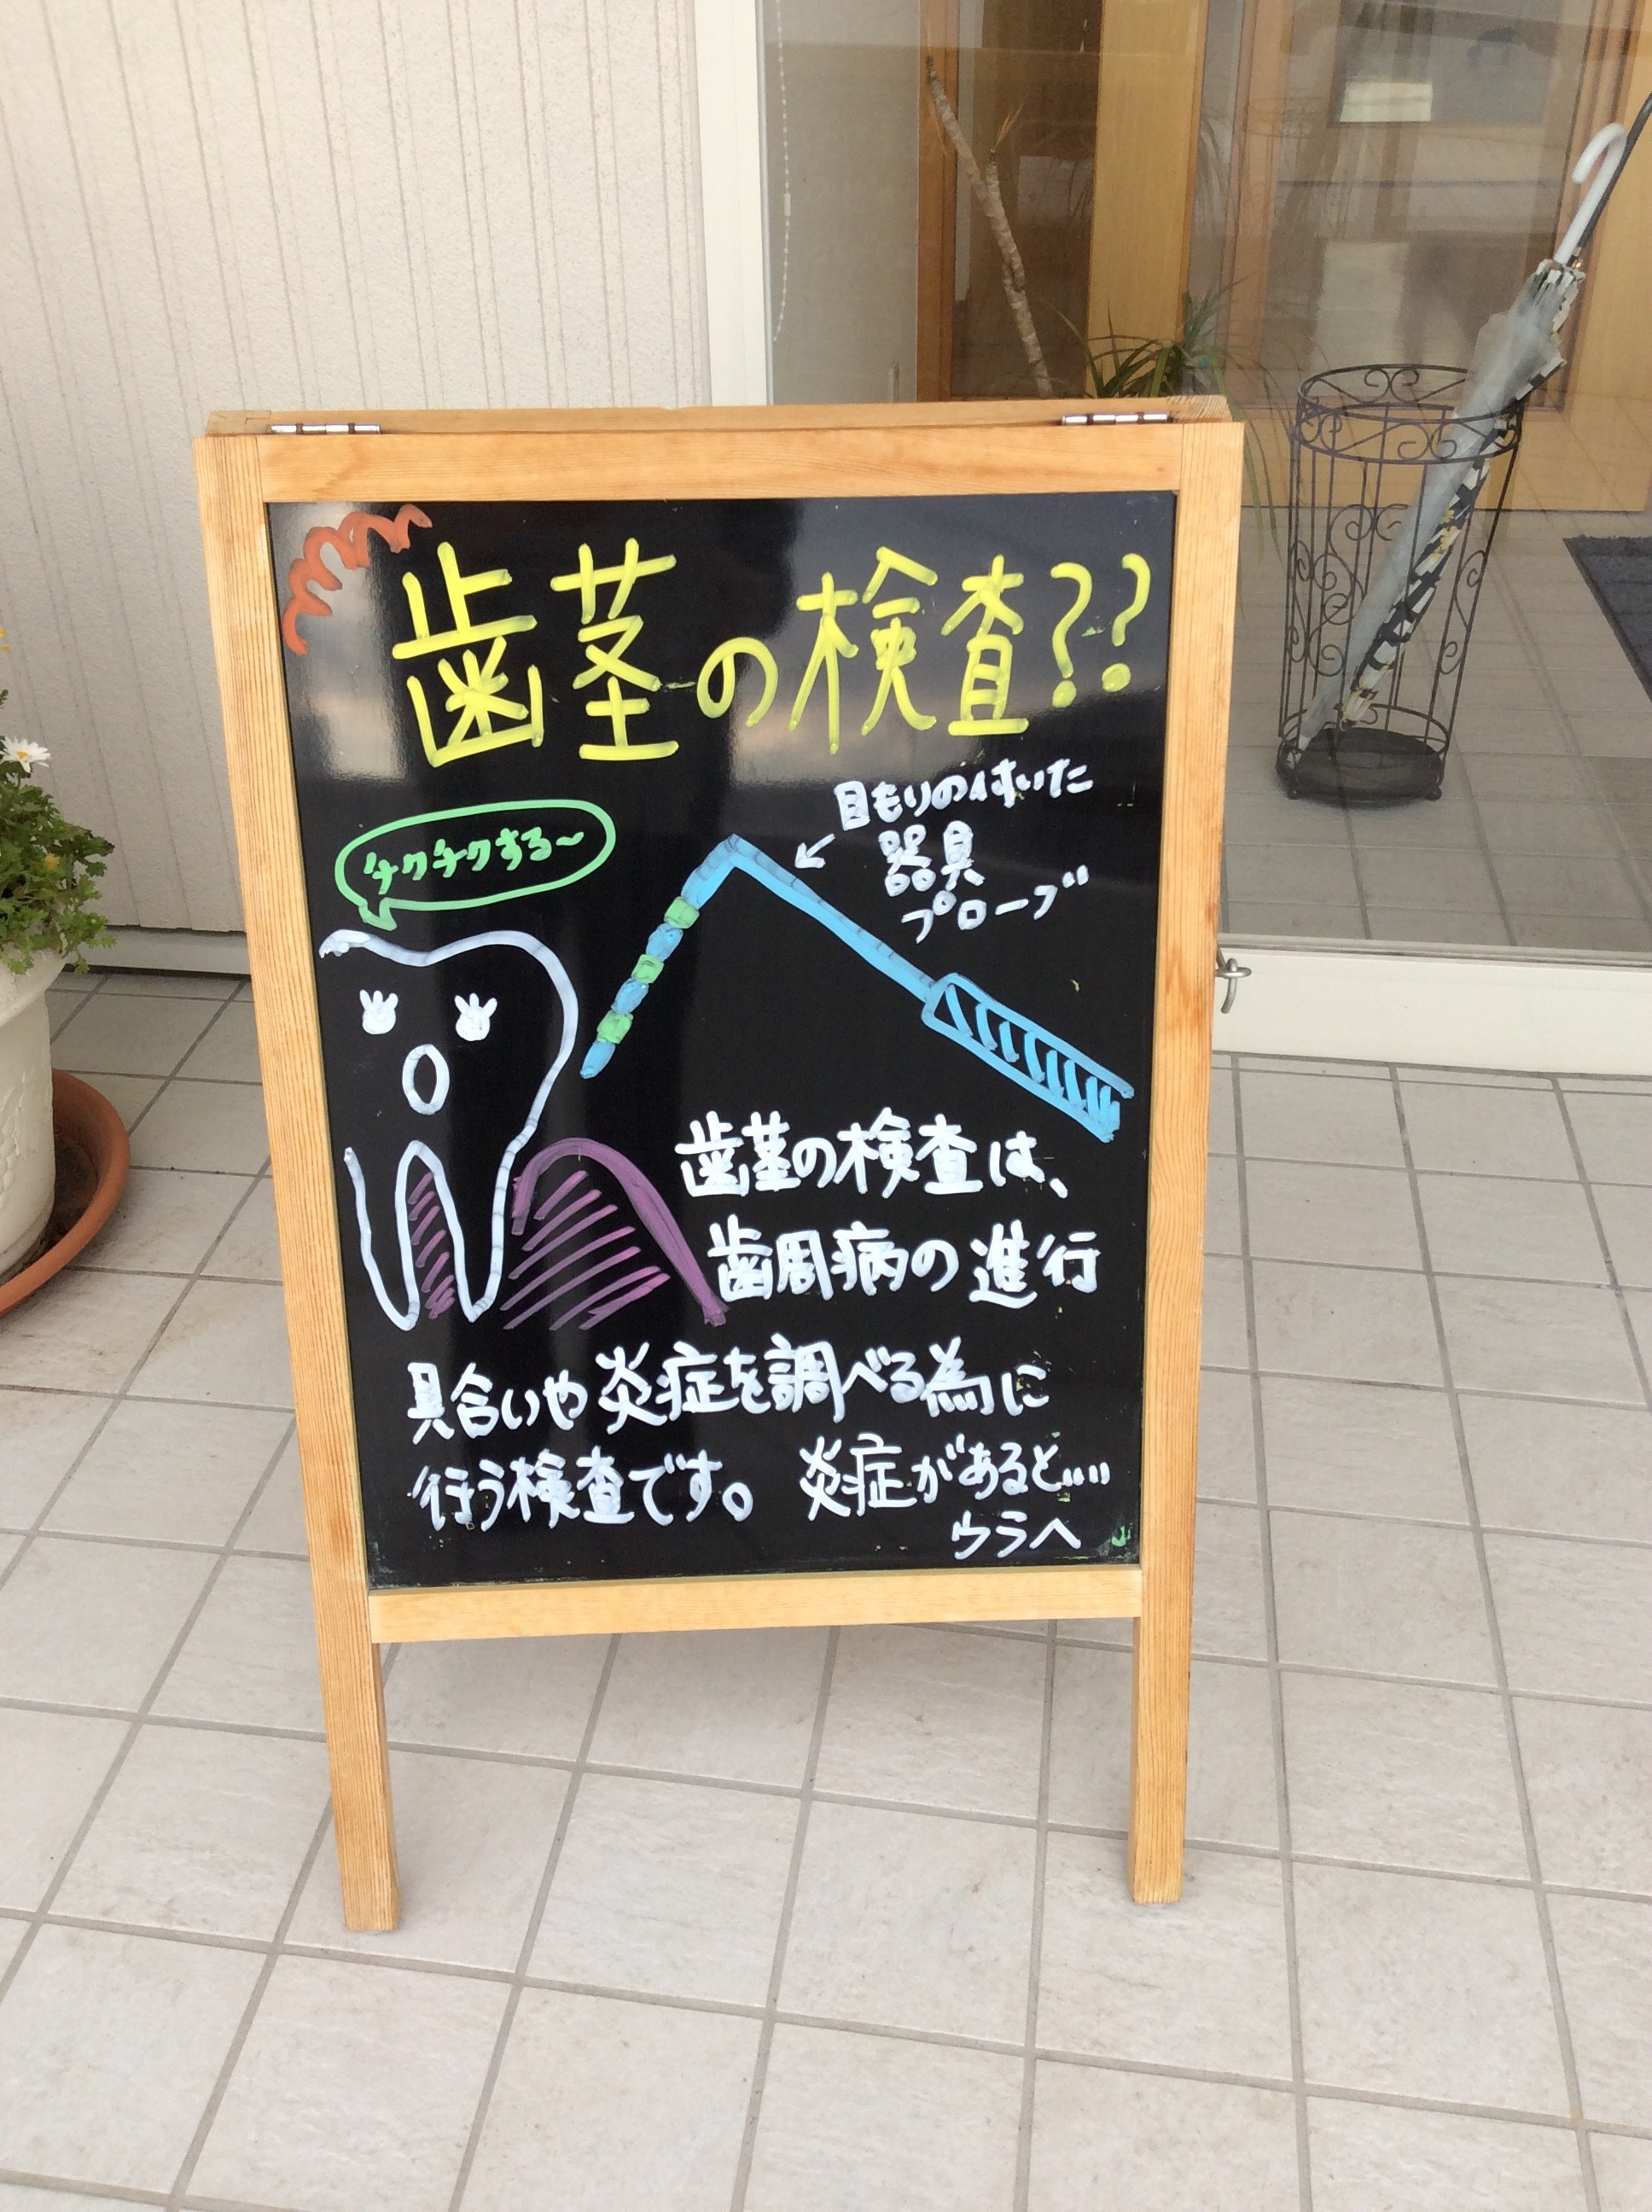 歯茎の検査??
目もりの付いた
器具
プローブ
チクチクする~
歯茎の検査は、
歯周病の進行
具合いや炎症を調べる為に
行う検査です。 炎症があると……
ウラへ